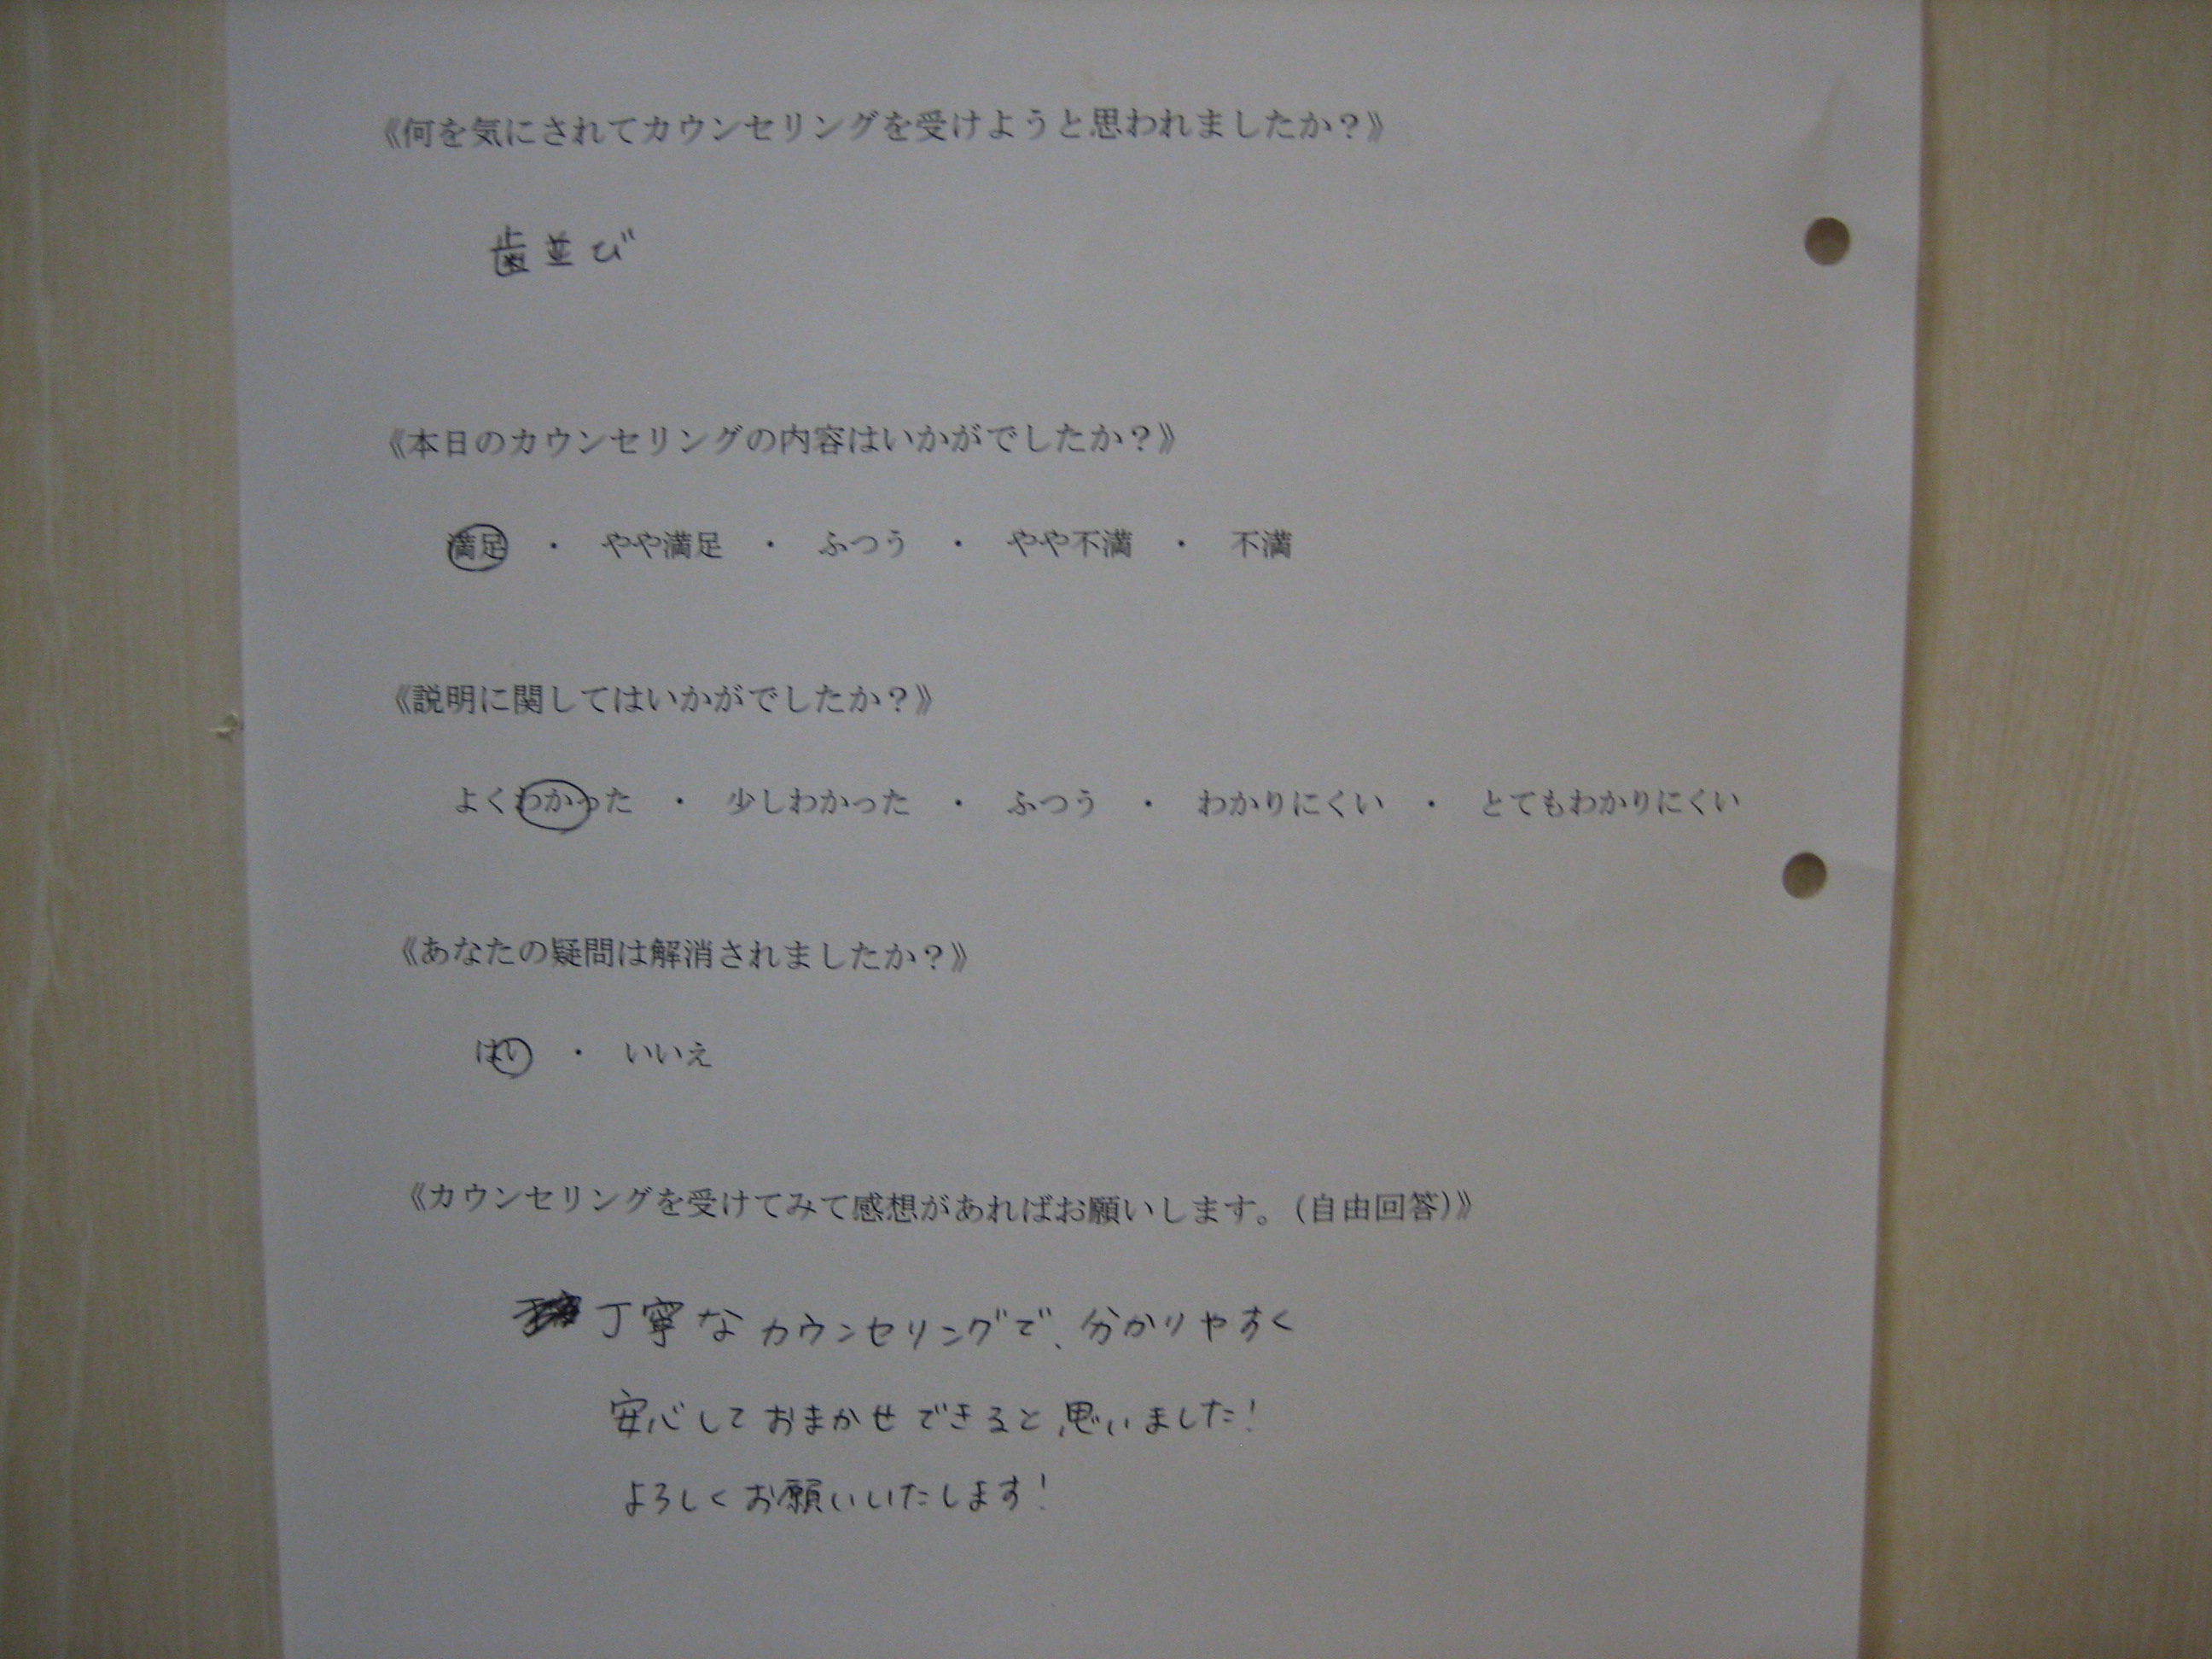 《何を気にされてカウンセリングを受けようと思われましたか？》
歯並び
《本日のカウンセリングの内容はいかがでしたか？》
満足 ・ やや満足 ・ ふつう ・ やや不満 ・ 不満
《説明に関してはいかがでしたか？》
よくわかった ・ 少しわかった ・ ふつう ・ わかりにくい ・ とてもわかりにくい
《あなたの疑問は解消されましたか？》
はい ・ いいえ
《カウンセリングを受けてみて感想があればお願いします。(自由回答)》
丁寧なカウンセリングで、分かりやすく
安心しておまかせできると思いました!
よろしくお願いいたします!